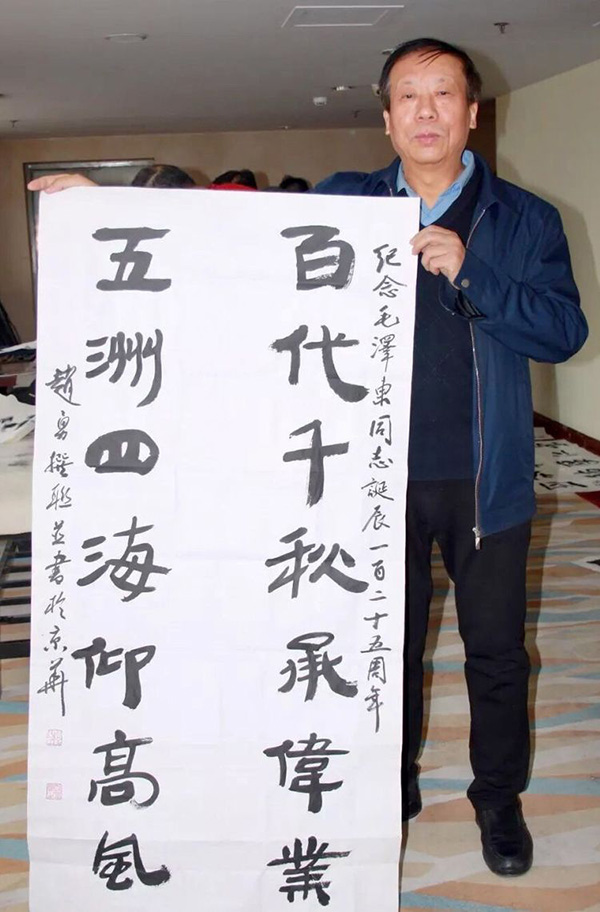 纪念毛澤東同志誕辰一百二十五周年
百代千秋承偉業
五洲四海仰高风
趙勇撰联並書於京華